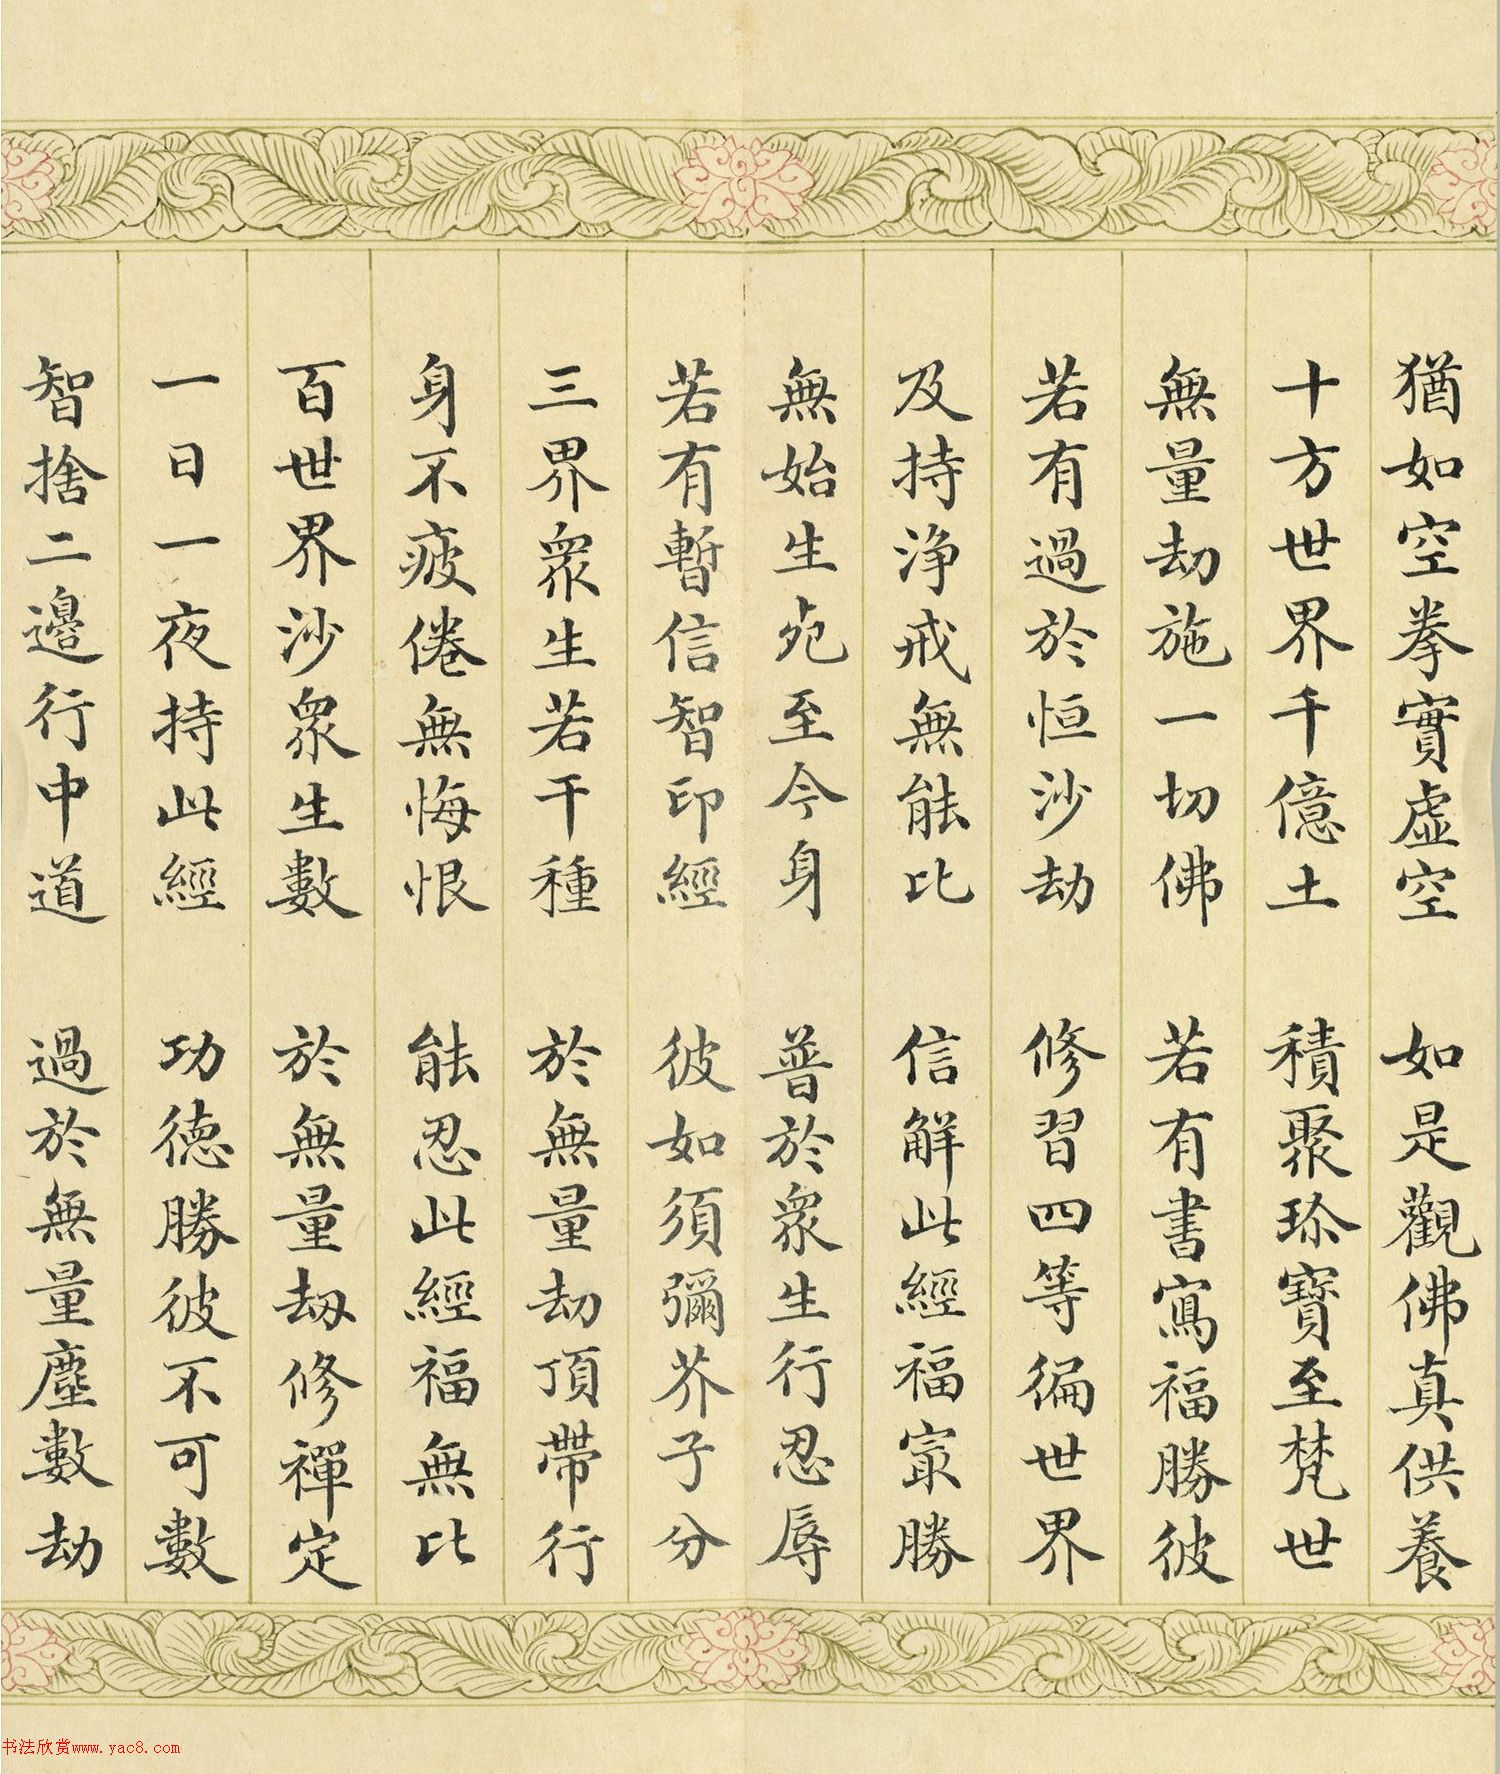 猶如空拳實虛空　如是觀佛真供養
十方世界千億土　積聚珎寶至梵世
無量劫施一切佛　若有書寫福勝彼
若有過於恒沙劫　修習四等徧世界
及持淨戒無能比　信解此經福冣勝
無始生死至今身　普於衆生行忍辱
若有暫信智印經　彼如須彌芥子分
三界衆生若干種　於無量劫頂帶行
身不疲倦無悔恨　能忍此經福無比
百世界沙衆生數　於無量劫修禪定
一日一夜持此經　功德勝彼不可數
智捨二邊行中道　過於無量塵數劫
书法欣赏www.yac8.com